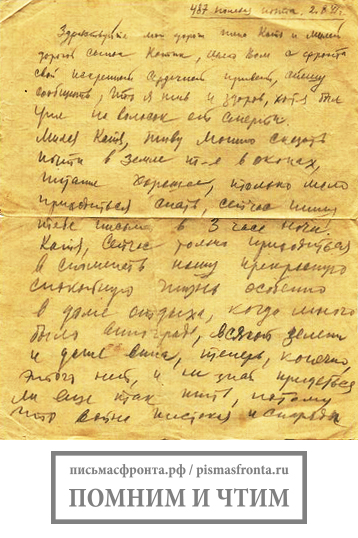 487 полевая почта. 2.X 41.
Здравствуйте мои дорогие жена Катя и милый
дорогой сынок Костик, шлю Вам с фронта
свой пламенный Сердечный привет, спешу
сообщить, что я жив и здоров, хотя был
уже на волосок от смерти.
Милая Катя, живу можно сказать
почти в земле т-е в окопах,
питание хорошее, только мало
приходиться спать, сейчас пишу
тебе письмо в 3 часа ночи.
Катя, сейчас только приходиться
вспоминать нашу прекрасную
спокойную жизнь особенно
в доме отдыха, когда много
было винограду, всякой зелени
и даже вина, теперь, конечно,
этого нет, и не знаю придеться
ли еще так жить, потому
что война жестокая и снаряды
письмасфронта.рф / pismasfronta.ru
ПОМНИМ И ЧТИМ